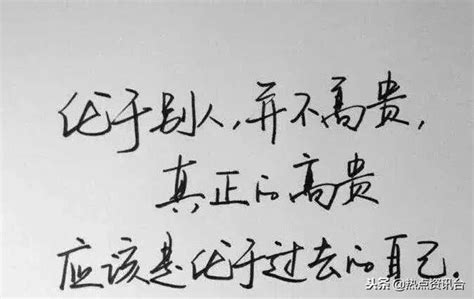 优于别人，并不高贵，
真正的高贵
应该是优于过去的自己.
头条@热点资讯台